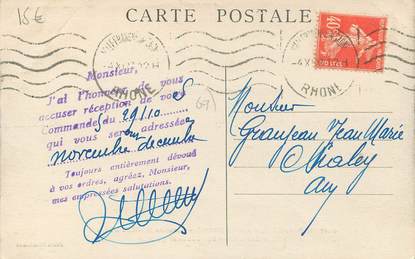 15€
CARTE POSTALE
RHONE
RHONE
40c
POSTES
Monsieur,
J'ai l'honneur de vous
accuser réception de vos
Commande du 29/10
qui vous sera adressée
novembre decembre
Toujours entièrement dévoué
à vos ordres, agréez, Monsieur,
mes empressées salutations.
(69)
Monsieur
Granjean Jean Marie
Chaley
Ain